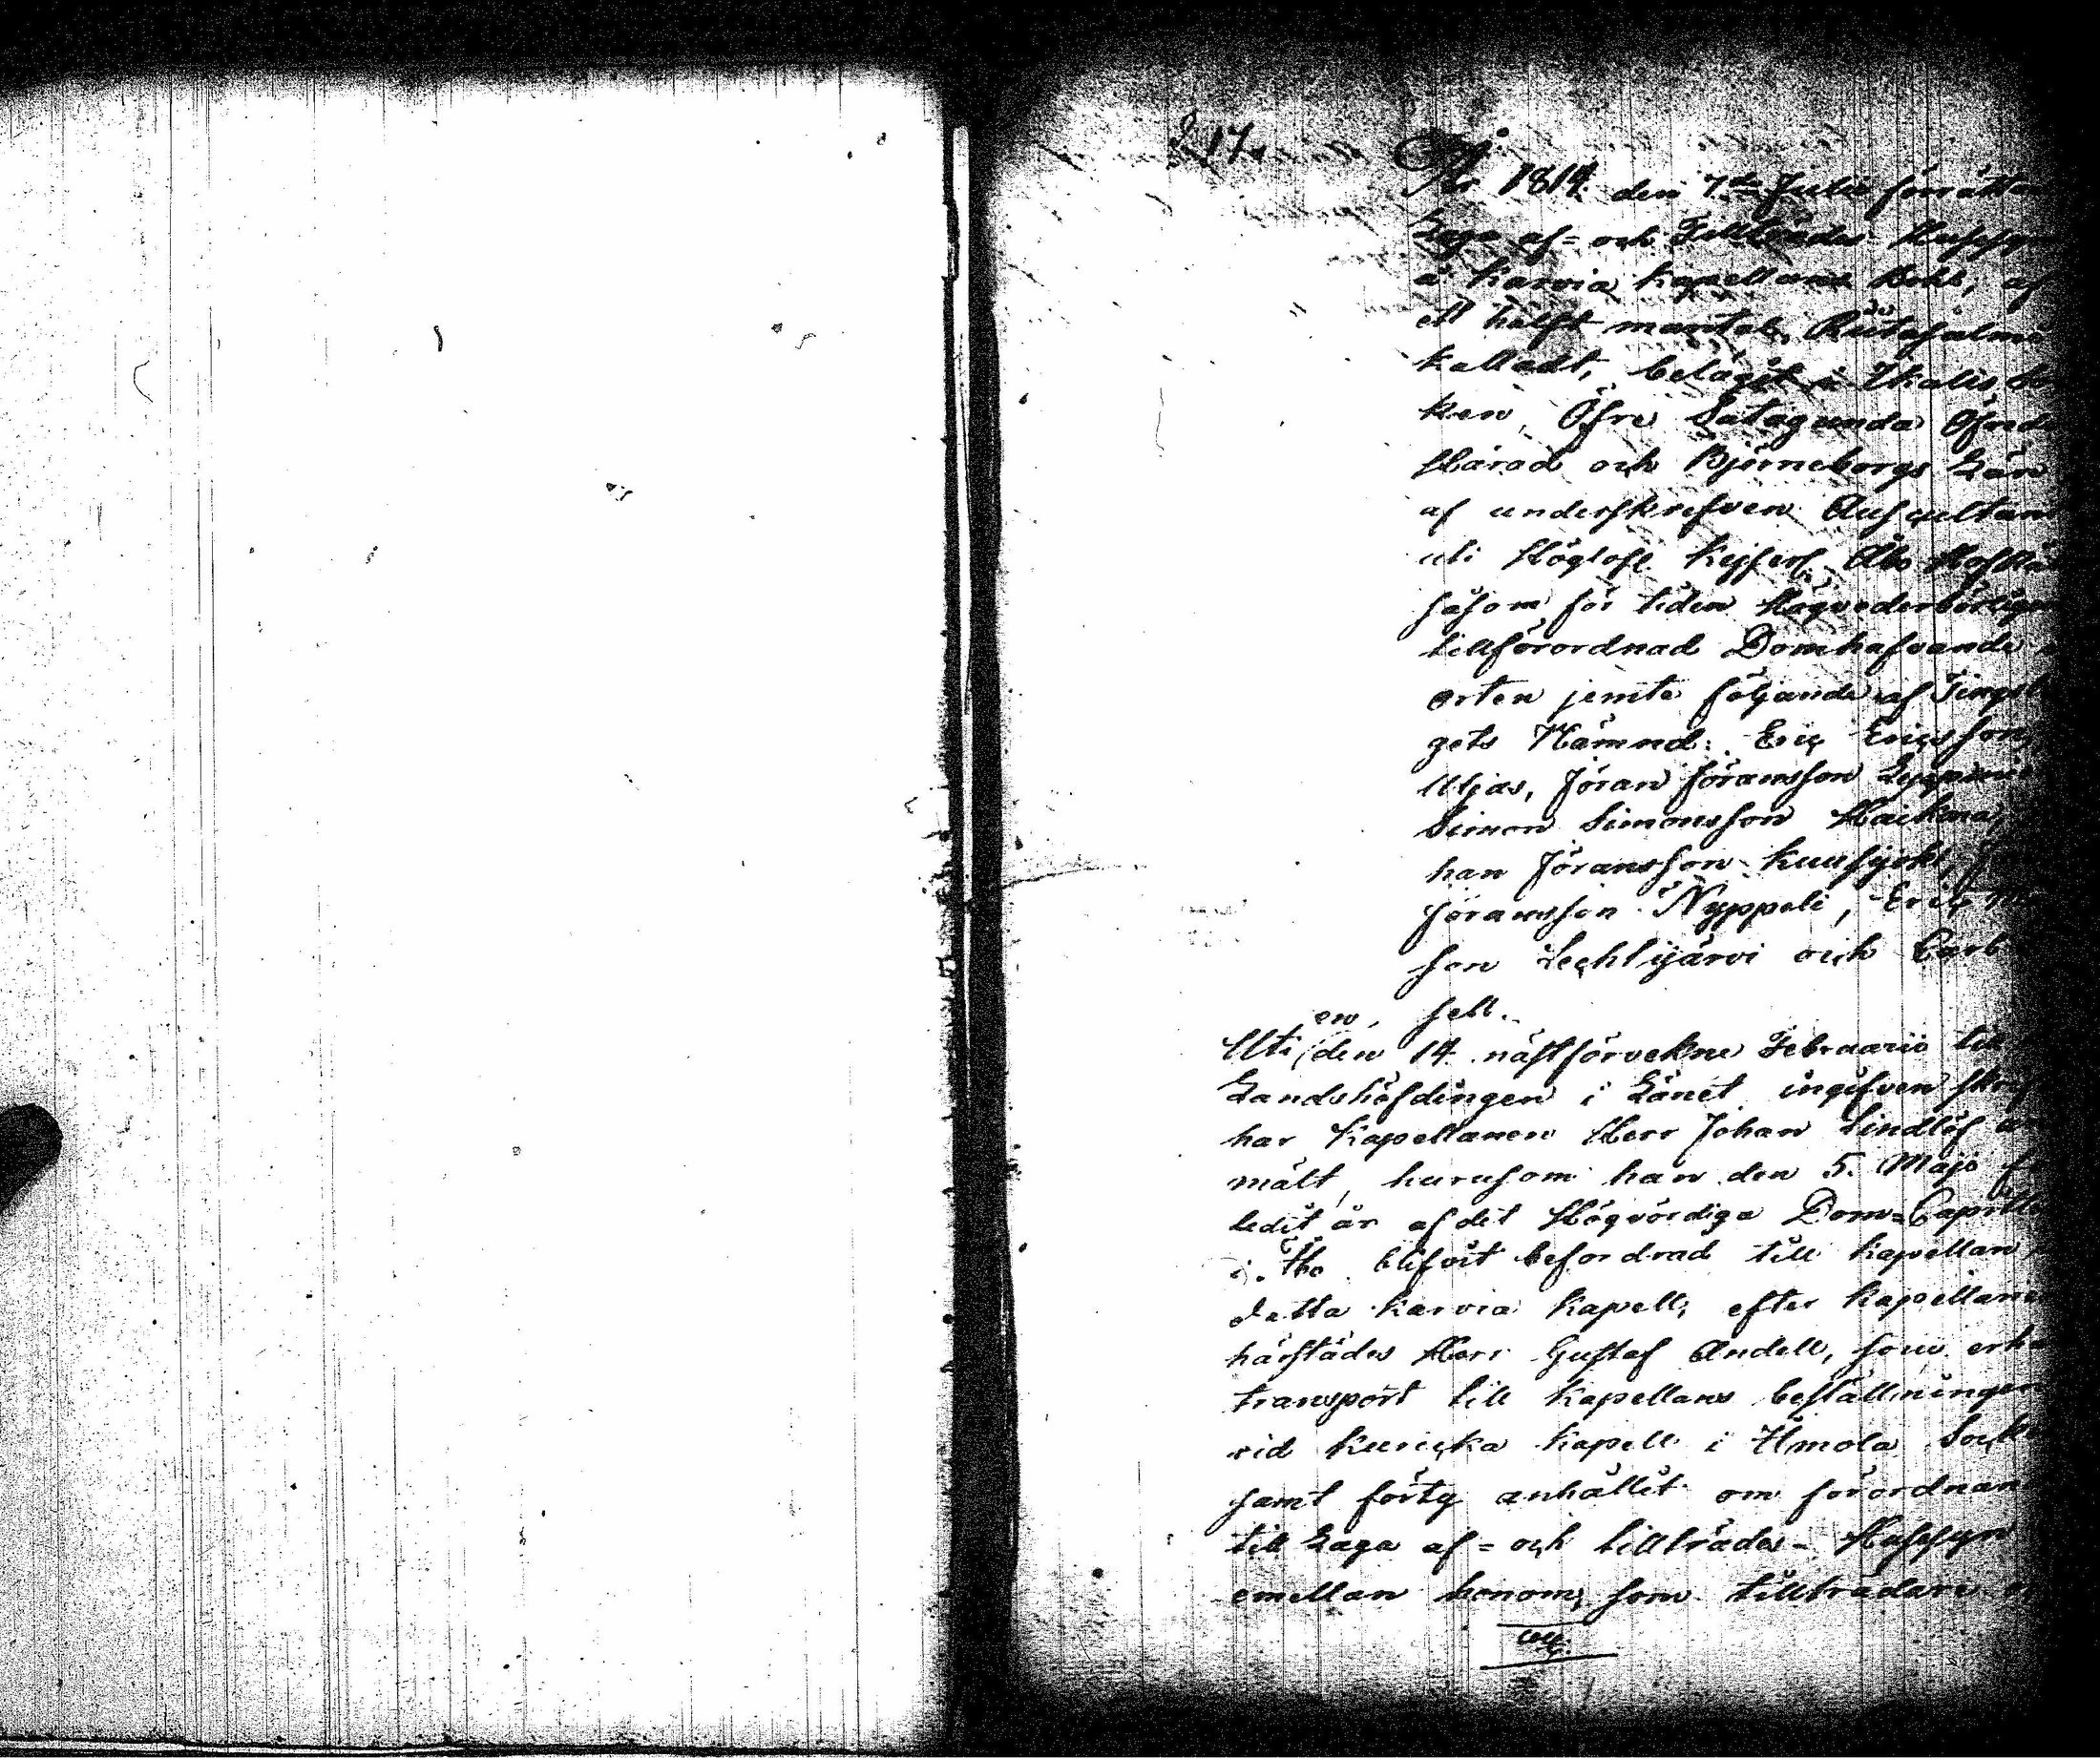 § 17.
År 1814 den 7de Julii förrättades
Laga af= och Tillträdes- Husesyn
å Karvia kapellans Bohl, af
ett hälft mantal,
kalladt, belägit i Ikalis Soc
ken, Öfre Satagunda Öfredels
Härad och Björneborgs Län
af underskrefven Auscultant
uti Höglofl. Kejserl. Åbo Hofrätt
såsom för tiden Högvederbörligen
tillförordnad Domhafvande i
orten jemte följande af Tingsla
gets Nämnd: Eric Ericsson
Uljas, Jöran Jöransson
Simon Simonsson
han Jöransson
Jöransson Nyppeli, Eric
son Lechtijärvi och
en. sell.
Uti den 14. nästförvekne Februarii till
Landshöfdingen i Länet ingifven skrift
har Kapellanen Herr Johan Lindlöf an
mält, hurusom han den 5. Maji
ledit år af det Högvördiga Dom=Capitlet
i Åbo blifvit befordrad till kapellan
detta Karvia Kapell, efter kapellanen
härstädes Herr Gustaf Andell, som erhållit
transport till Kapellans beställningen
vid Kuricka kapell i Ilmola Sockn
samt förty anhållit om förordnande
till Laga af= och tillträdes- Husesyn
emellan honom, som tillträdare